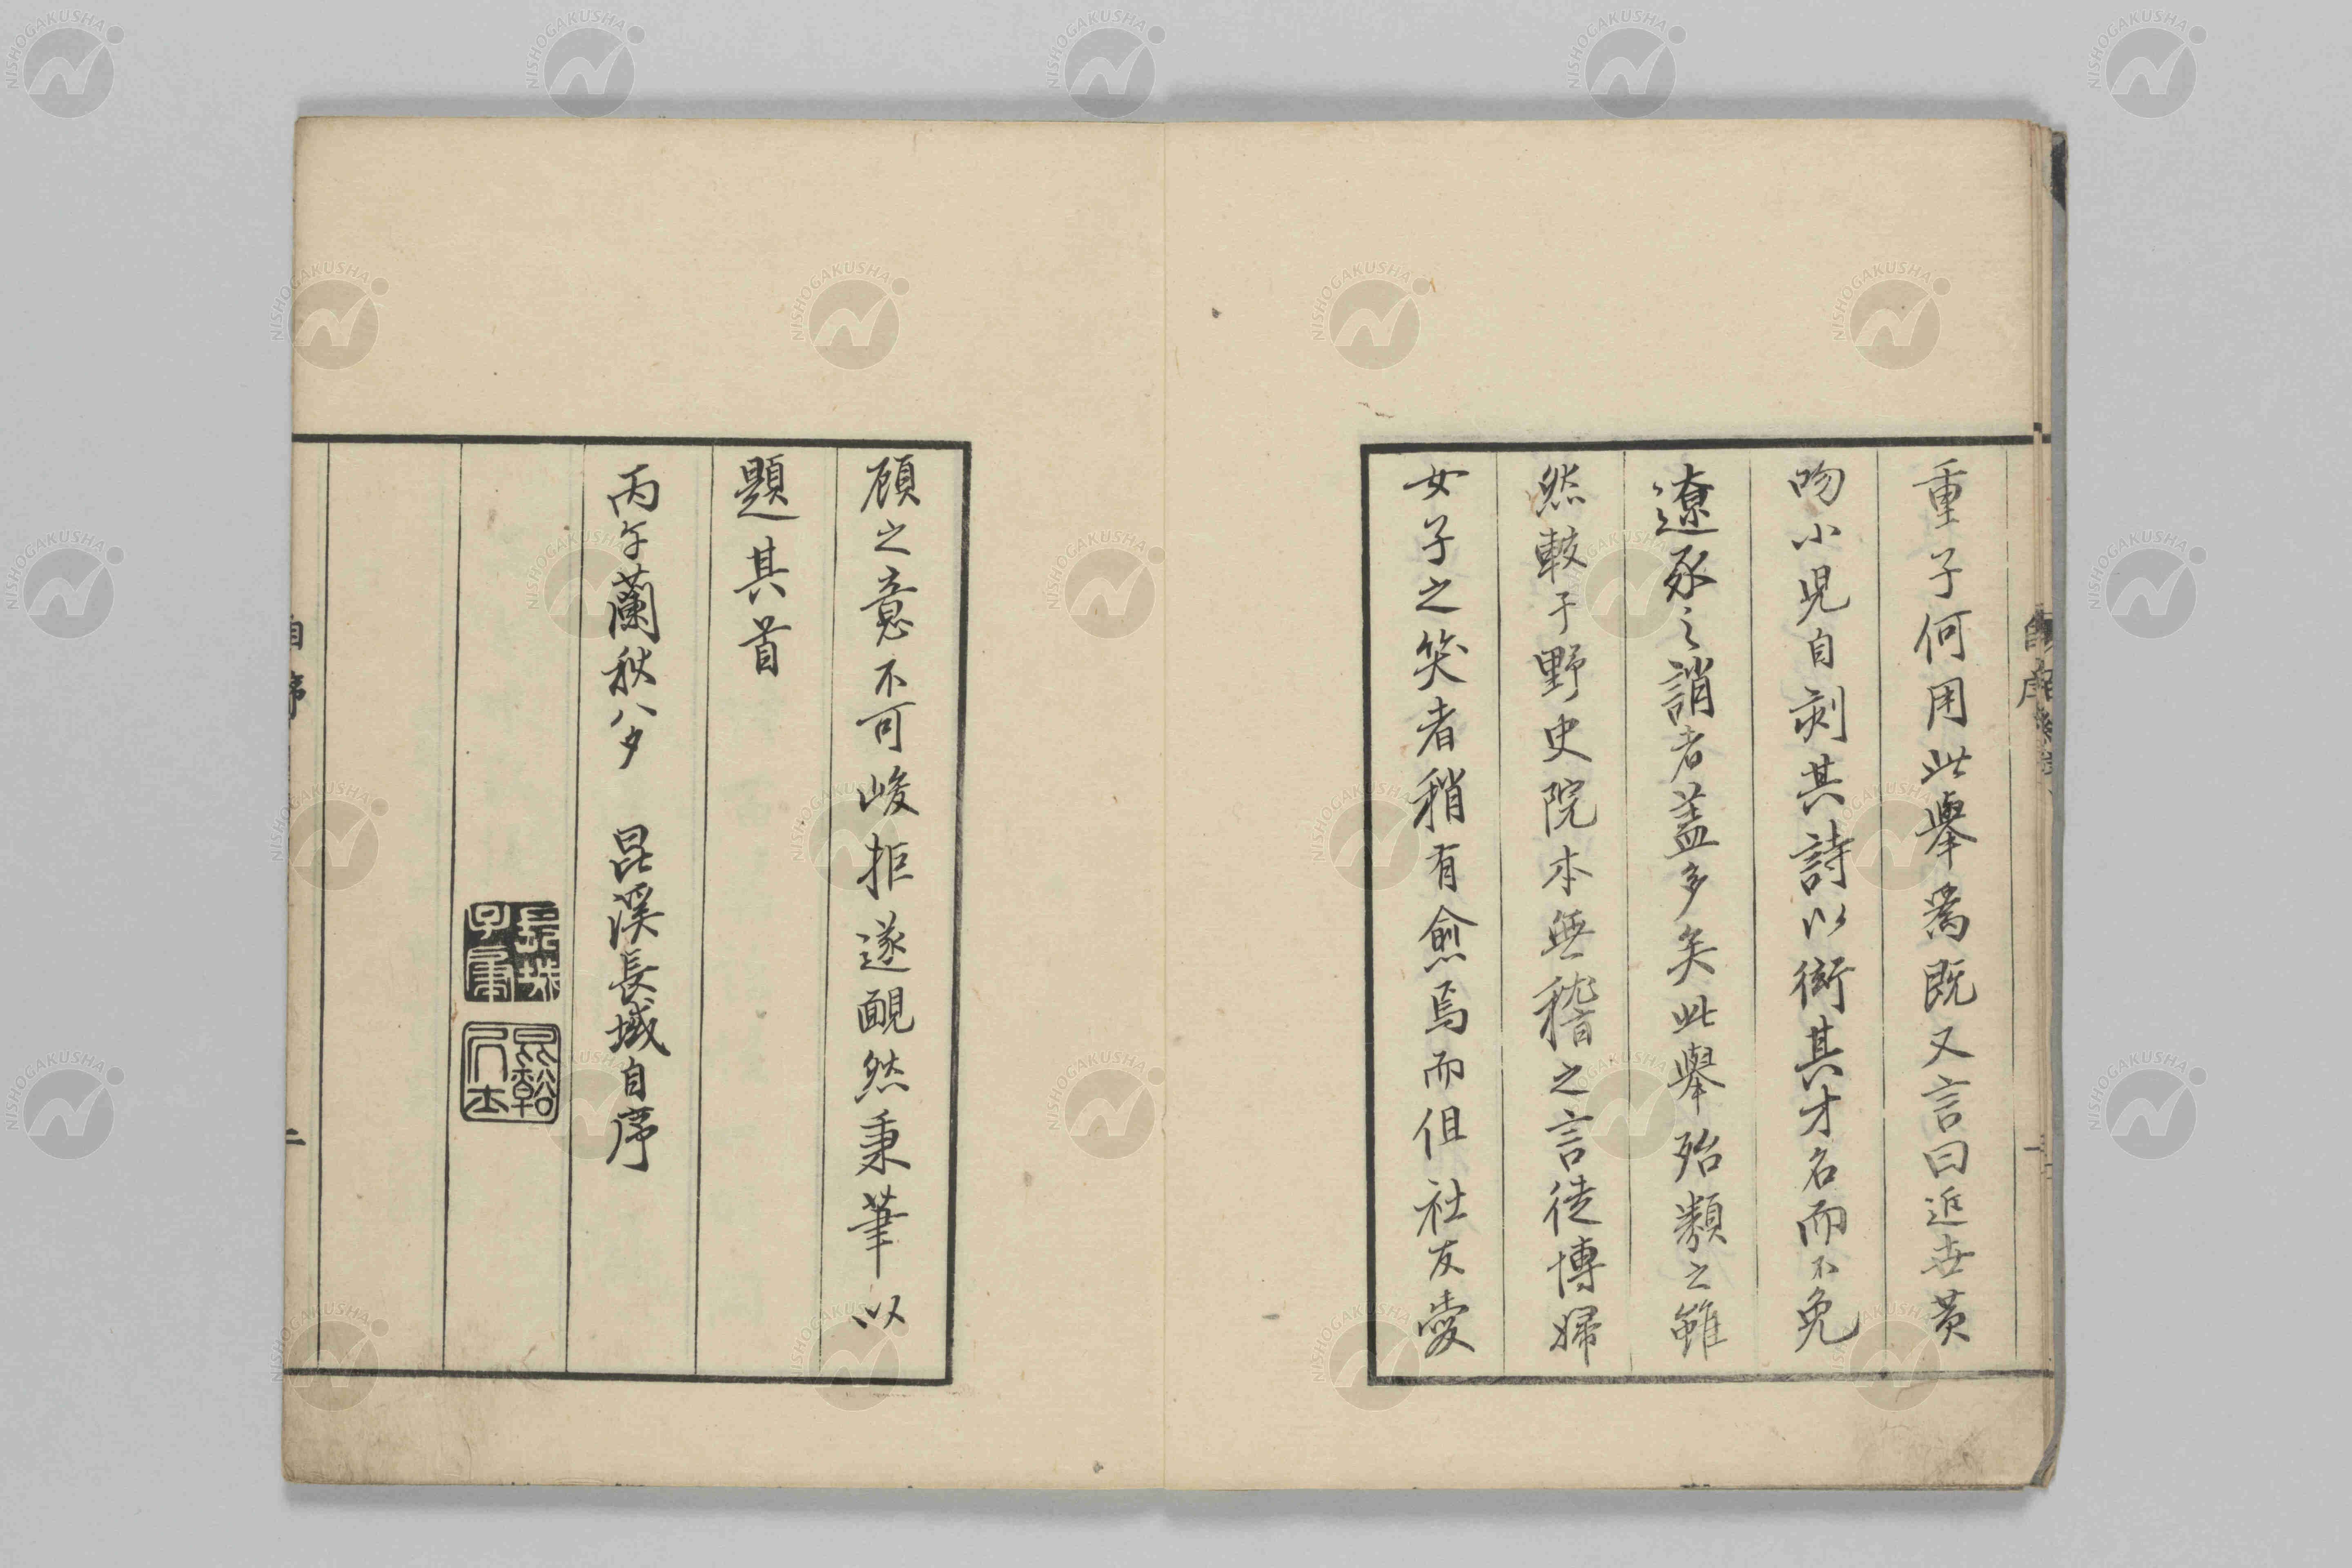 重子何用此擧爲既又言曰近世黄
吻小児自刻其詩以衒其才名而不免
遼豕之誚者蓋多矣此擧殆類之雖
然較于野史院本無稽之言徒博婦
女子之笑者稍有愈焉而但社友愛
顧之意不可峻拒遂靦然秉筆以
題其首
丙午蘭秋八夕 昆溪長域自序
自序
二
NISHOGAKUSHA